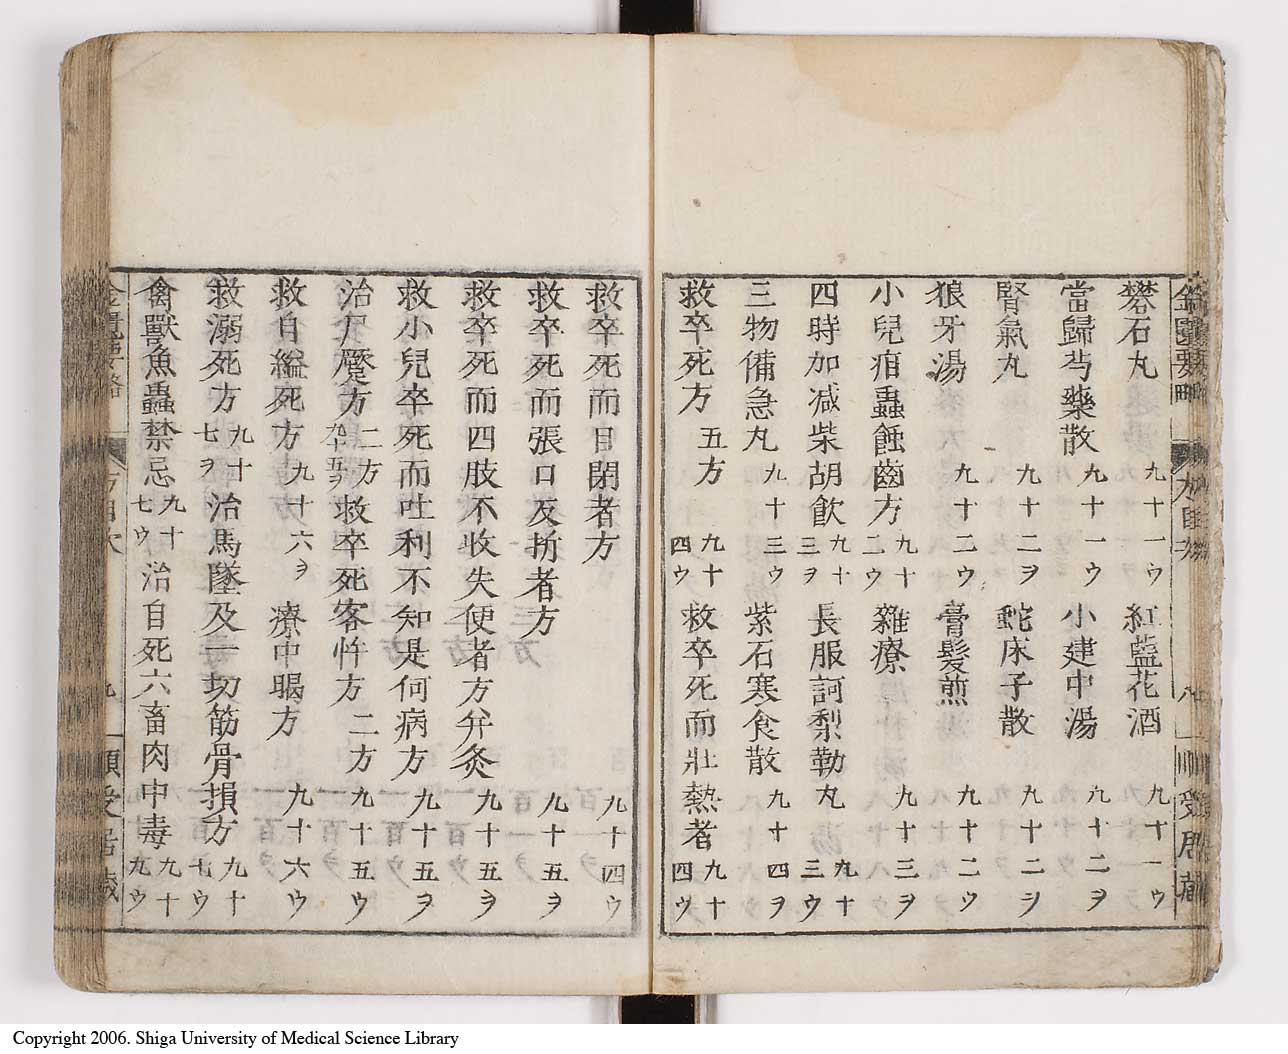 礬石丸 九十一ウ 紅藍花酒 九十一ウ
當歸芍藥散 九十一ウ 小建中湯 九十二ヲ
腎氣丸 九十二ヲ 蛇床子散 九十二ヲ
狼牙湯 九十二ウ 膏髮煎 九十二ウ
小兒疳蟲蝕齒方 九十二ウ 雜療 九十三ヲ
四時加减柴胡飲 九十三ヲ 長服訶梨勒丸 九十三ウ
三物備急丸 九十三ウ 紫石寒食散 九十四ヲ
救卒死方 五方 九十四ウ 救卒死而壯熱者 九十四ウ
救卒死而目閉者方 九十四ウ
救卒死而張口反折者方 九十五ヲ
救卒死而四肢不收失便者方并灸 九十五ヲ
救小兒卒死而吐利不知是何病方 九十五ヲ
治尸蹷方 二方 九十五ヲ 救卒死客忤方 二方 九十五ウ
救自縊死方 九十六ヲ 療中暍方 九十六ウ
救溺死方 九十七ヲ 治馬墜及一切筋骨損方 九十七ウ
禽獸魚蟲禁忌 九十七ウ 治自死六畜肉中毒 九十九ウ
金匱要略 方目次 九
Copyright 2006. Shiga University of Medical Science Library